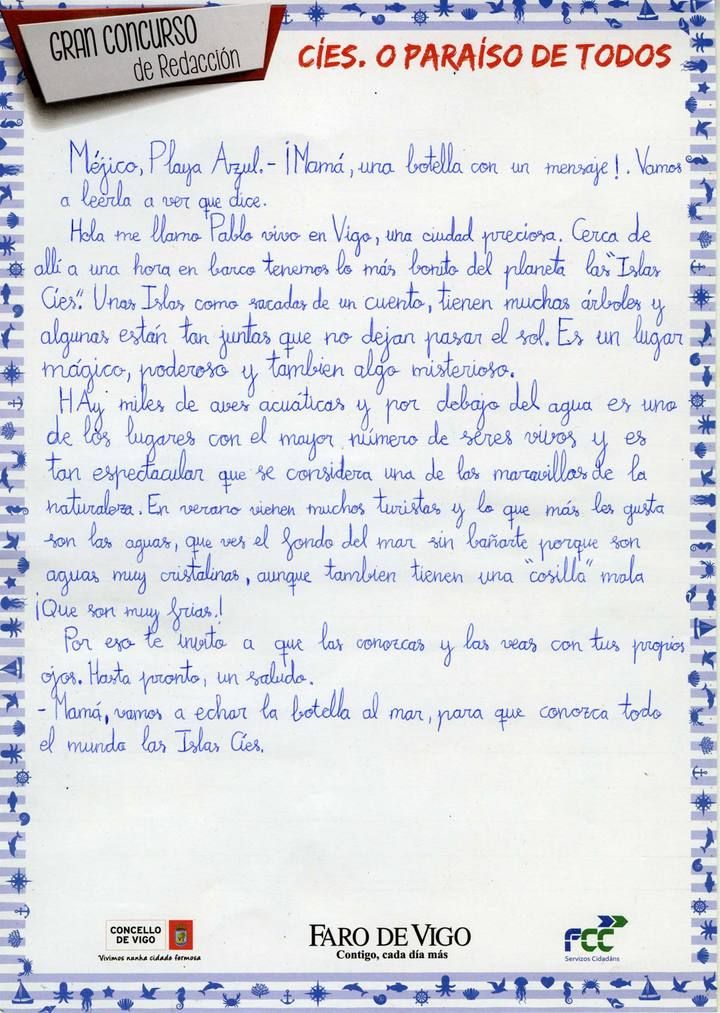 GRAN CONCURSO
de Redacción
CÍES. O PARAÍSO DE TODOS
Méjico, Playa Azul.- ¡Mamá, una botella con un mensaje!. Vamos
a leerla a ver que dice.
Hola me llamo Pablo vivo en Vigo, una ciudad preciosa. Cerca de
allí a una hora en barco tenemos lo más bonito del planeta las "Islas
Cíes". Unas Islas como sacadas de un cuento, tienen muchas árboles y
algunas están tan juntas que no dejan pasar el sol. Es un lugar
mágico, poderoso y tambien algo misterioso.
HAy miles de aves acuáticas y por debajo del agua es uno
de los lugares con el mayor número de seres vivos y es
tan espectacular que se considera una de las maravillas de la
naturaleza. En verano vienen muchos turistas y lo que más les gusta
son las aguas, que ves el fondo del mar sin bañarte porque son
aguas muy cristalinas, aunque tambien tienen una "cosilla" mala
¡Que son muy frias.!
Por eso te invito a que las conozcas y las veas con tus propios
ojos. Hasta pronto, un saludo.
- Mamá, vamos a echar la botella al mar, para que conozca todo
el mundo las Islas Cíes.
CONCELLO
DE VIGO
Vivimos nunha cidade fermosa
FARO DE VIGO
Contigo, cada día más
FCC
Servizos Cidadáns